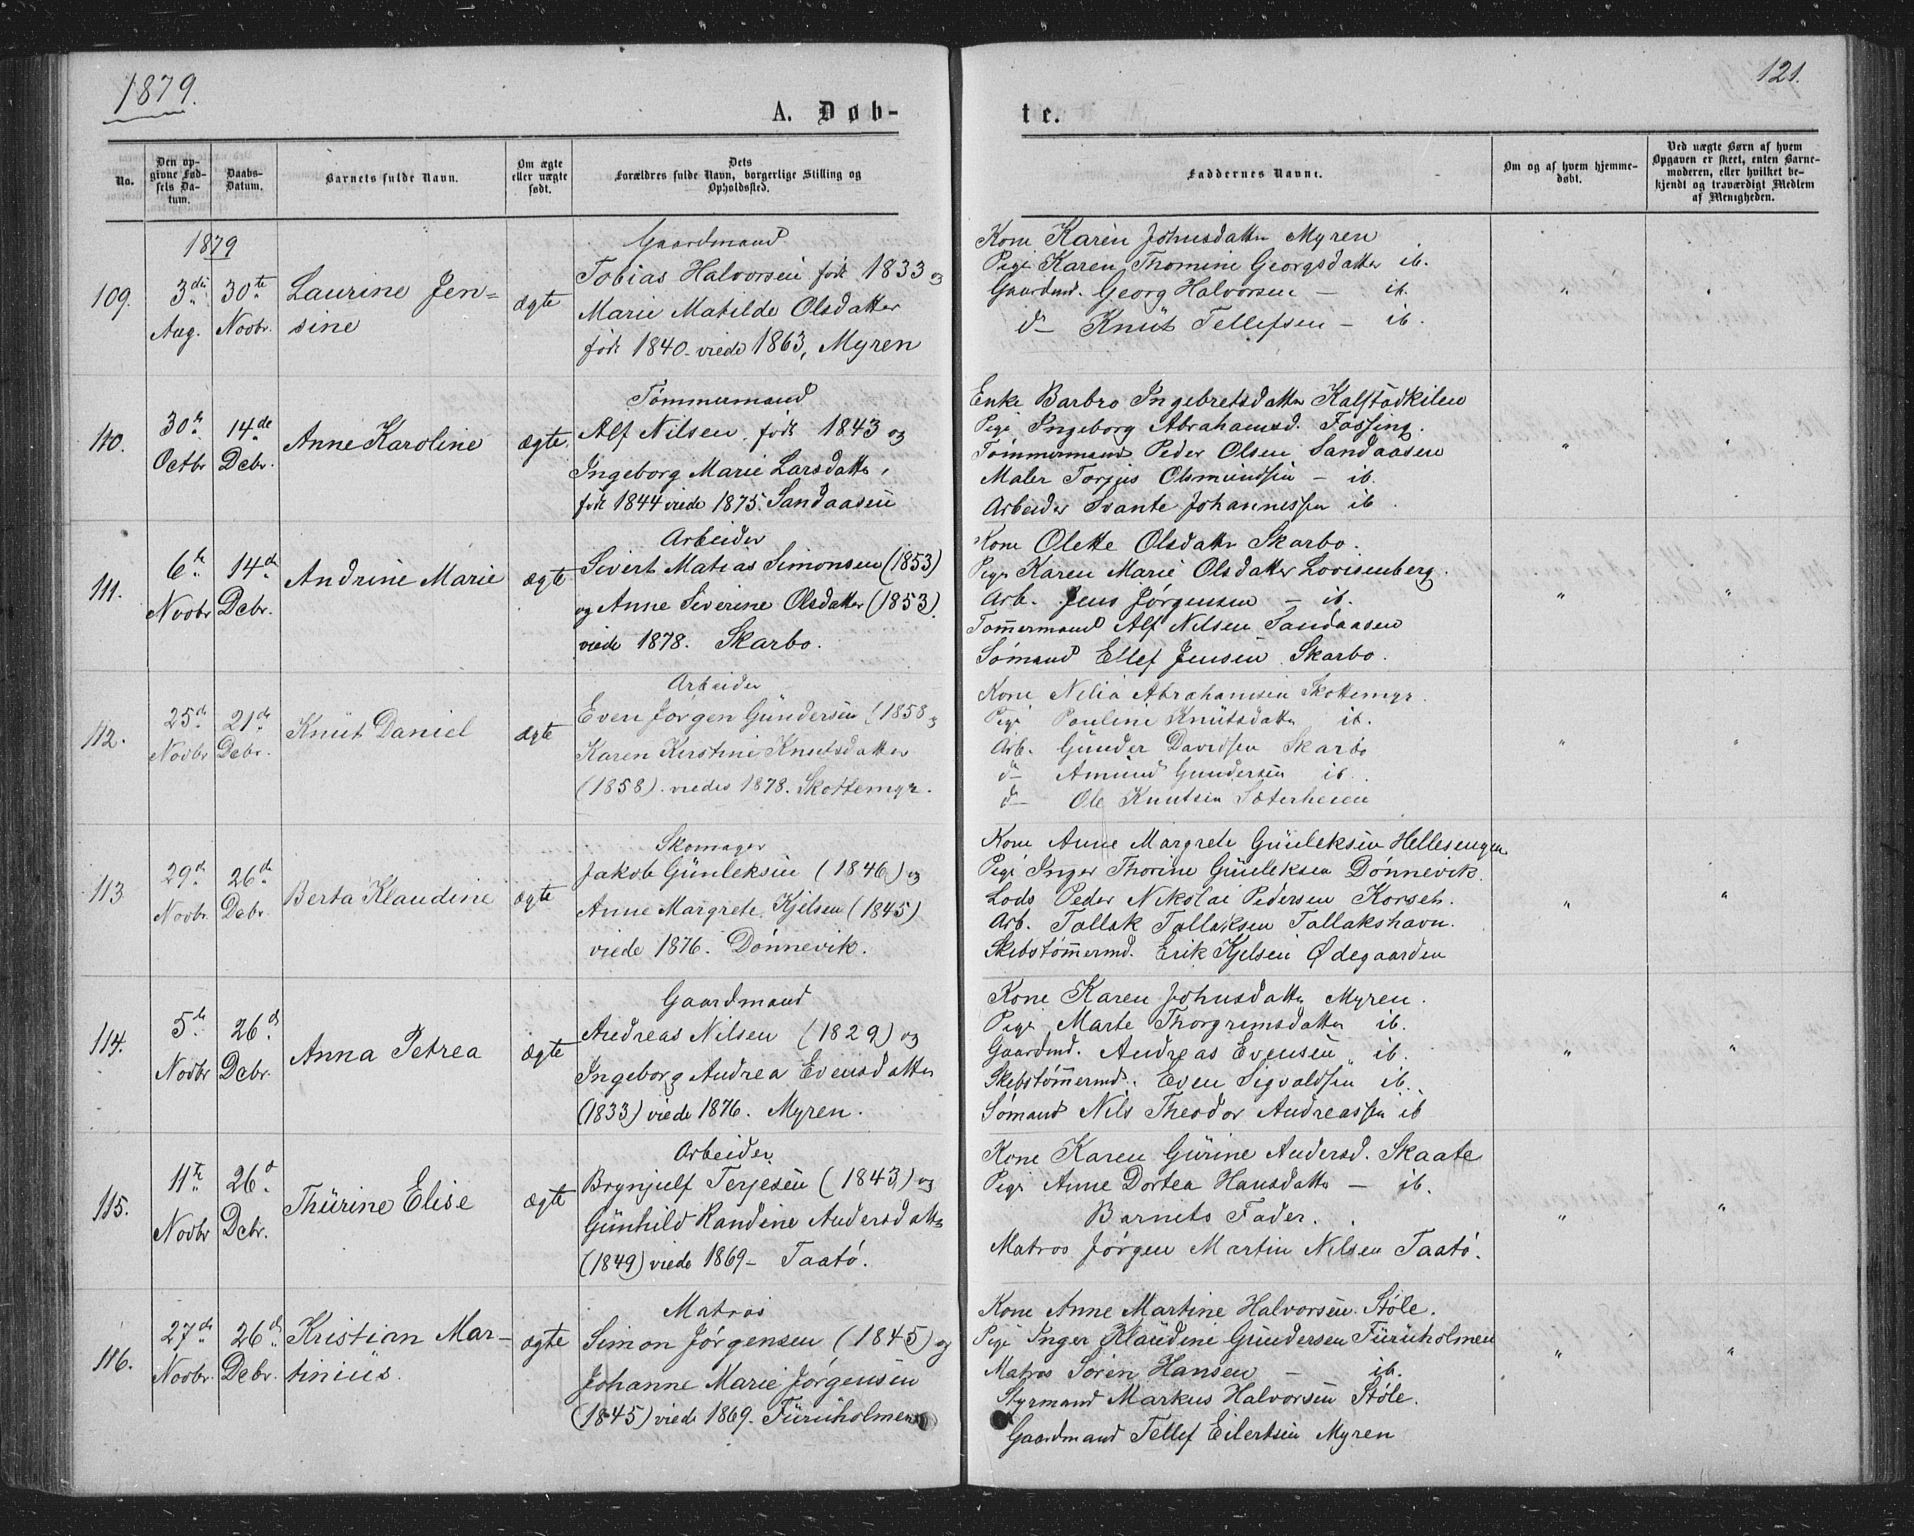 1879.
121.
A. Døb-
te.
No.
Den op-
givne Fød-
sels Da-
tum.
Daabs-
Datum.
Barnets fulde Navn.
Om ægte
eller uægte
født.
Dets
Forældres fulde Navn, borgerlige Stilling og
Opholdssted.
Faddernes Navne.
Om og af hvem hjemme-
døbt.
Ved uægte Børn af hvem
Opgaven er skeet, enten Barne-
moderen, eller hvilket be-
kjendt og troværdigt Medlem
af Menigheden.
1879
109.
3die
Aug.
30te
Novbr.
Laurine Jen=
sine
ægte
Gaardmand
Tobias Halvorsen født 1833 og
Marie Matilde Olsdatter
født 1840 - viede 1863, Myren
Kone Karen Johnsdatter Myren
Pige Karen Thomine Georgsdatter ib.
Gaardmd. Georg Halvorsen — ib
d— Knüt Tellefsen — ib.
110.
30te
Octbr
14de
Dcbr.
Anne Karoline
ægte.
Tømmermand
Alf Nilsen, født 1843 og
Ingeborg Marie Larsdatter,
født 1844 viede 1875. Sandaasen
Enke Barbro Ingebretsdatter Kalstadkilen
Pige Ingeborg Abrahamsd. Fossing.
Tømmermand Peder Olsen Sandaasen
Maler Torjus Olsmundsen — ib.
Arbeider Svante Johannessen ib
111.
6te
Novbr
14de
Dcbr.
Andrine Marie
ægte
Arbeider
Sivert Matias Simonsen (1853)
og Anne Siverine Olsdatter (1853)
viede 1878. Skarbo.
Kone Olette Olsdatter Skarbo.
Pige Karen Marie Olsdatter Lovisenberg.
Arb. Jens Jørgensen — ib.
Tømmermand Alf Nilsen Sandaasen
Sømand Ellef Jensen Skarbo.
112.
25de
Novbr
21de
Dcbr.
Knüt Daniel
ægte
Arbeider
Even Jørgen Gündersen (1858 og
Karen Kirstine Knutsdatter
(1858). viedes 1878. Skottemyr.
Kone Nilia Abrahamsen Skottemyr.
Pige Pauline Knütsdatter ib.
Arb. Günder Davidsen Skarbo
d— Amund Gundersen ib.
d— Ole Knutsen Sæterheien
113
29de
Novbr.
26de
Dcbr
Berta Klaudine
ægte
Skomager
Jakob Günleksen (1846) og
Anne Margrete Kjelsen (1845)
viede 1876. Dønnevik.
Kone Anne Margrete Günleksen Hellesengen
Pige Inger Thorine Günleksen Dønnevik.
Lods Peder Nikolai Pedersen Korseh.
Arb. Tallak Tallaksen Tallakshavn.
Skibstømmermd. Erik Kjelsen Ødegaarden
114.
5te
Novbr
26de
Dcbr.
Anna Petrea
ægte
Gaardmand
Andreas Nilsen (1829) og
Ingeborg Andrea Evensdatter
(1833) viede 1876. Myren.
Kone Karen Johnsdatter Myren.
Pige Marte Thorgrimsdatter ib.
Gaardmd. Andreas Evensen ib.
Skibstømmermd. Even Sigvaldsen ib.
Sømand Nils Theodor Andreassen ib
115.
11te
Novbr
26de
Dcbr.
Thürine Elise
ægte
Arbeider
Brynjulf Terjesen (1843) og
Günhild Randine Andersdatter
(1849) viede 1869 - Taatø.
Kone Karen Gürine Andersd. Skaate
Pige Anne Dortea Hansdatter — ib.
Barnets Fader.
Matros Jørgen Martin Nilsen Taatø.
116.
27de
Novbr.
26de
Dcbr.
Kristian Mar-
tiniüs.
ægte
Matros
Simon Jørgensen (1845) og
Johanne Marie Jørgensen
(1845) viede 1869. Furüholmen
Kone Anne Martine Halvorsen Støle.
Pige Inger Klaüdine Gündersen Fürüholmen
Matros Søren Hansen — ib.
Styrmand Markus Halvorsen Støle.
Gaardmand Tellef Eilertsen Myren